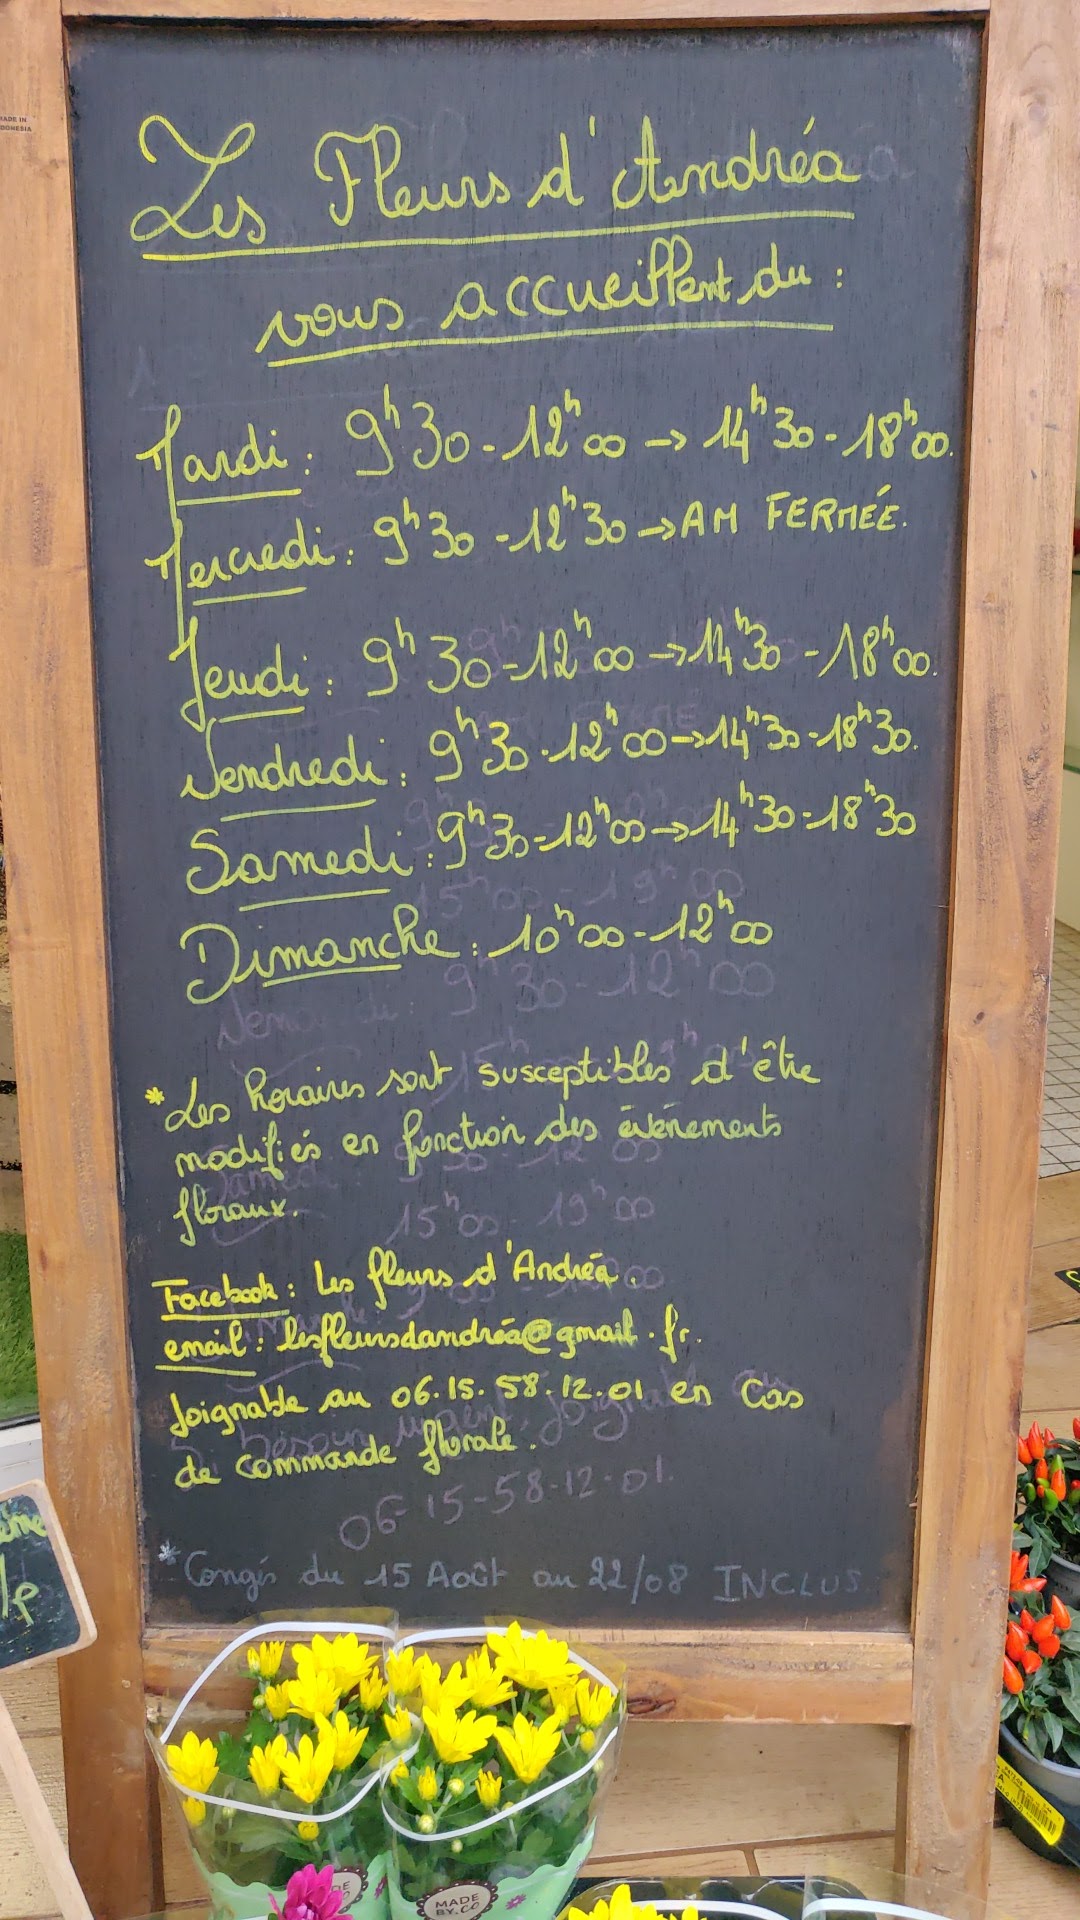 Les Fleurs d'Andréa
vous accueillent du :
Mardi : 9h30 - 12h00 → 14h30 - 18h00.
Mercredi : 9h30 - 12h30 → AM FERMÉE.
Jeudi : 9h30 - 12h00 → 14h30 - 18h00.
Vendredi : 9h30 - 12h00 → 14h30 - 18h30.
Samedi : 9h30 - 12h00 → 14h30 - 18h30
Dimanche : 10h00 - 12h00
* Les horaires sont susceptibles d'être
modifiés en fonction des évènements
floraux.
Facebook : Les fleurs d'Andréa.
email : lesfleursdandréa@gmail.fr.
Joignable au 06.15.58.12.01 en cas
de commande florale.
06-15-58-12-01.
* Congés du 15 Août au 22/08 INCLUS
MADE IN
MADE
BY.CO